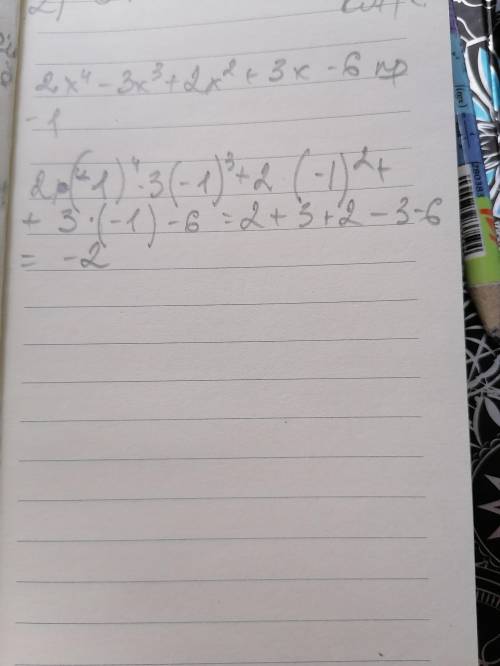 2)
2x⁴ - 3x³ + 2x² + 3x - 6 пр
-1
2·(-1)⁴ - 3(-1)³ + 2·(-1)² +
+ 3·(-1) - 6 = 2 + 3 + 2 - 3 - 6
= -2